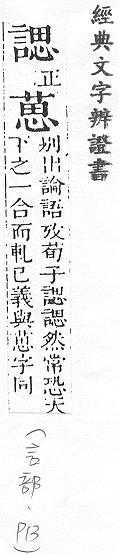 經典文字辨證書
諰正葸別出論語攷荀子諰諰然常恐天
下之一合而軋己義與葸字同
(言部、P13)